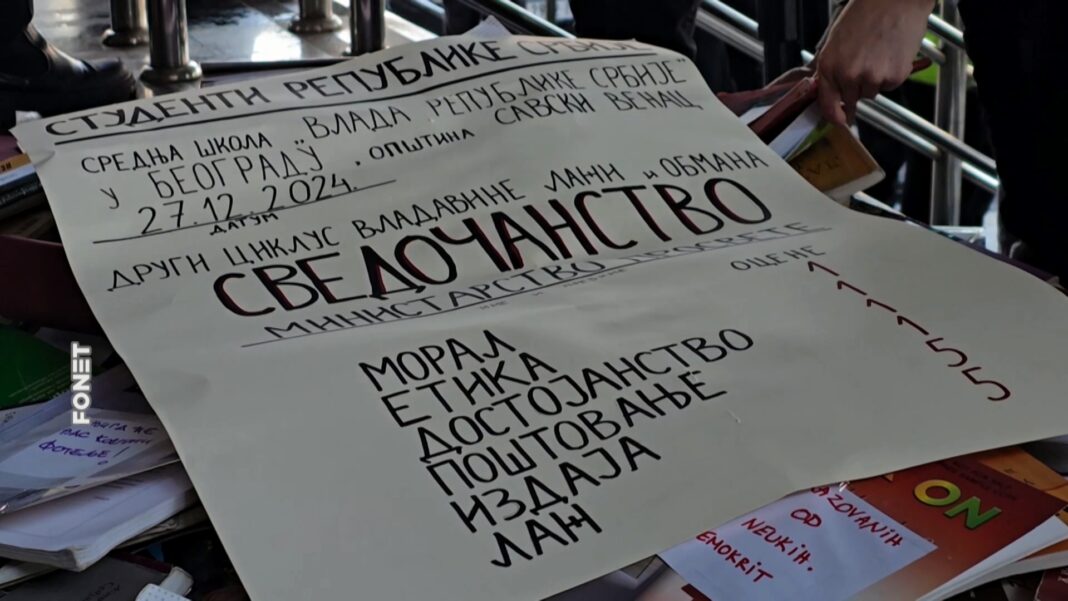 СТУДЕНТИ РЕПУБЛИКЕ СРБИЈЕ
СРЕДЊА ШКОЛА "ВЛАДА РЕПУБЛИКЕ СРБИЈЕ"
У БЕОГРАДУ, ОПШТИНА САВСКИ ВЕНАЦ
27.12.2024.
ДАТУМ
ДРУГИ ЦИКЛУС ВЛАДАВИНЕ ЛАЖИ И ОБМАНА
СВЕДОЧАНСТВО
МИНИСТАРСТВО ПРОСВЕТЕ
ИМЕ И ПРЕЗИМЕ
ОЦЕНЕ
МОРАЛ 1
ЕТИКА 1
ДОСТОЈАНСТВО 1
ПОШТОВАЊЕ 1
ИЗДАЈА 5
ЛАЖ 5
FONET
ФОТЕЉЕ!
ON
OD
NEUKIH.